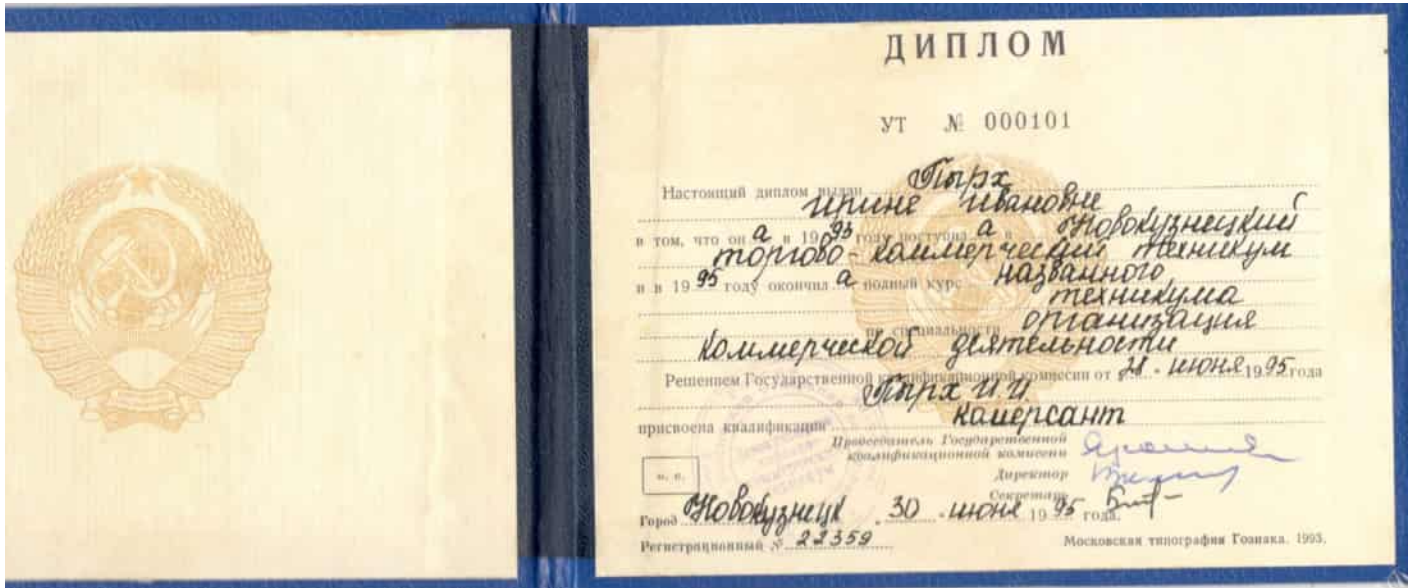 ДИПЛОМ
УТ № 000101
Настоящий диплом выдан Пырх
Ирине Ивановне
в том, что он а в 19 93 году поступил а в Новокузнецкий
торгово-коммерческий техникум
и в 19 95 году окончил а полный курс названного
техникума
по специальности организация
коммерческой деятельности
Решением Государственной квалификационной комиссии от 28 июня 19 95 года
Пырх И.И.
присвоена квалификация комерсант
Председатель Государственной
квалификационной комиссии
Директор
м. п.
Секретарь
Город Новокузнецк 30 июня 19 95 года.
Регистрационный № 22359
Московская типография Гознака. 1993.